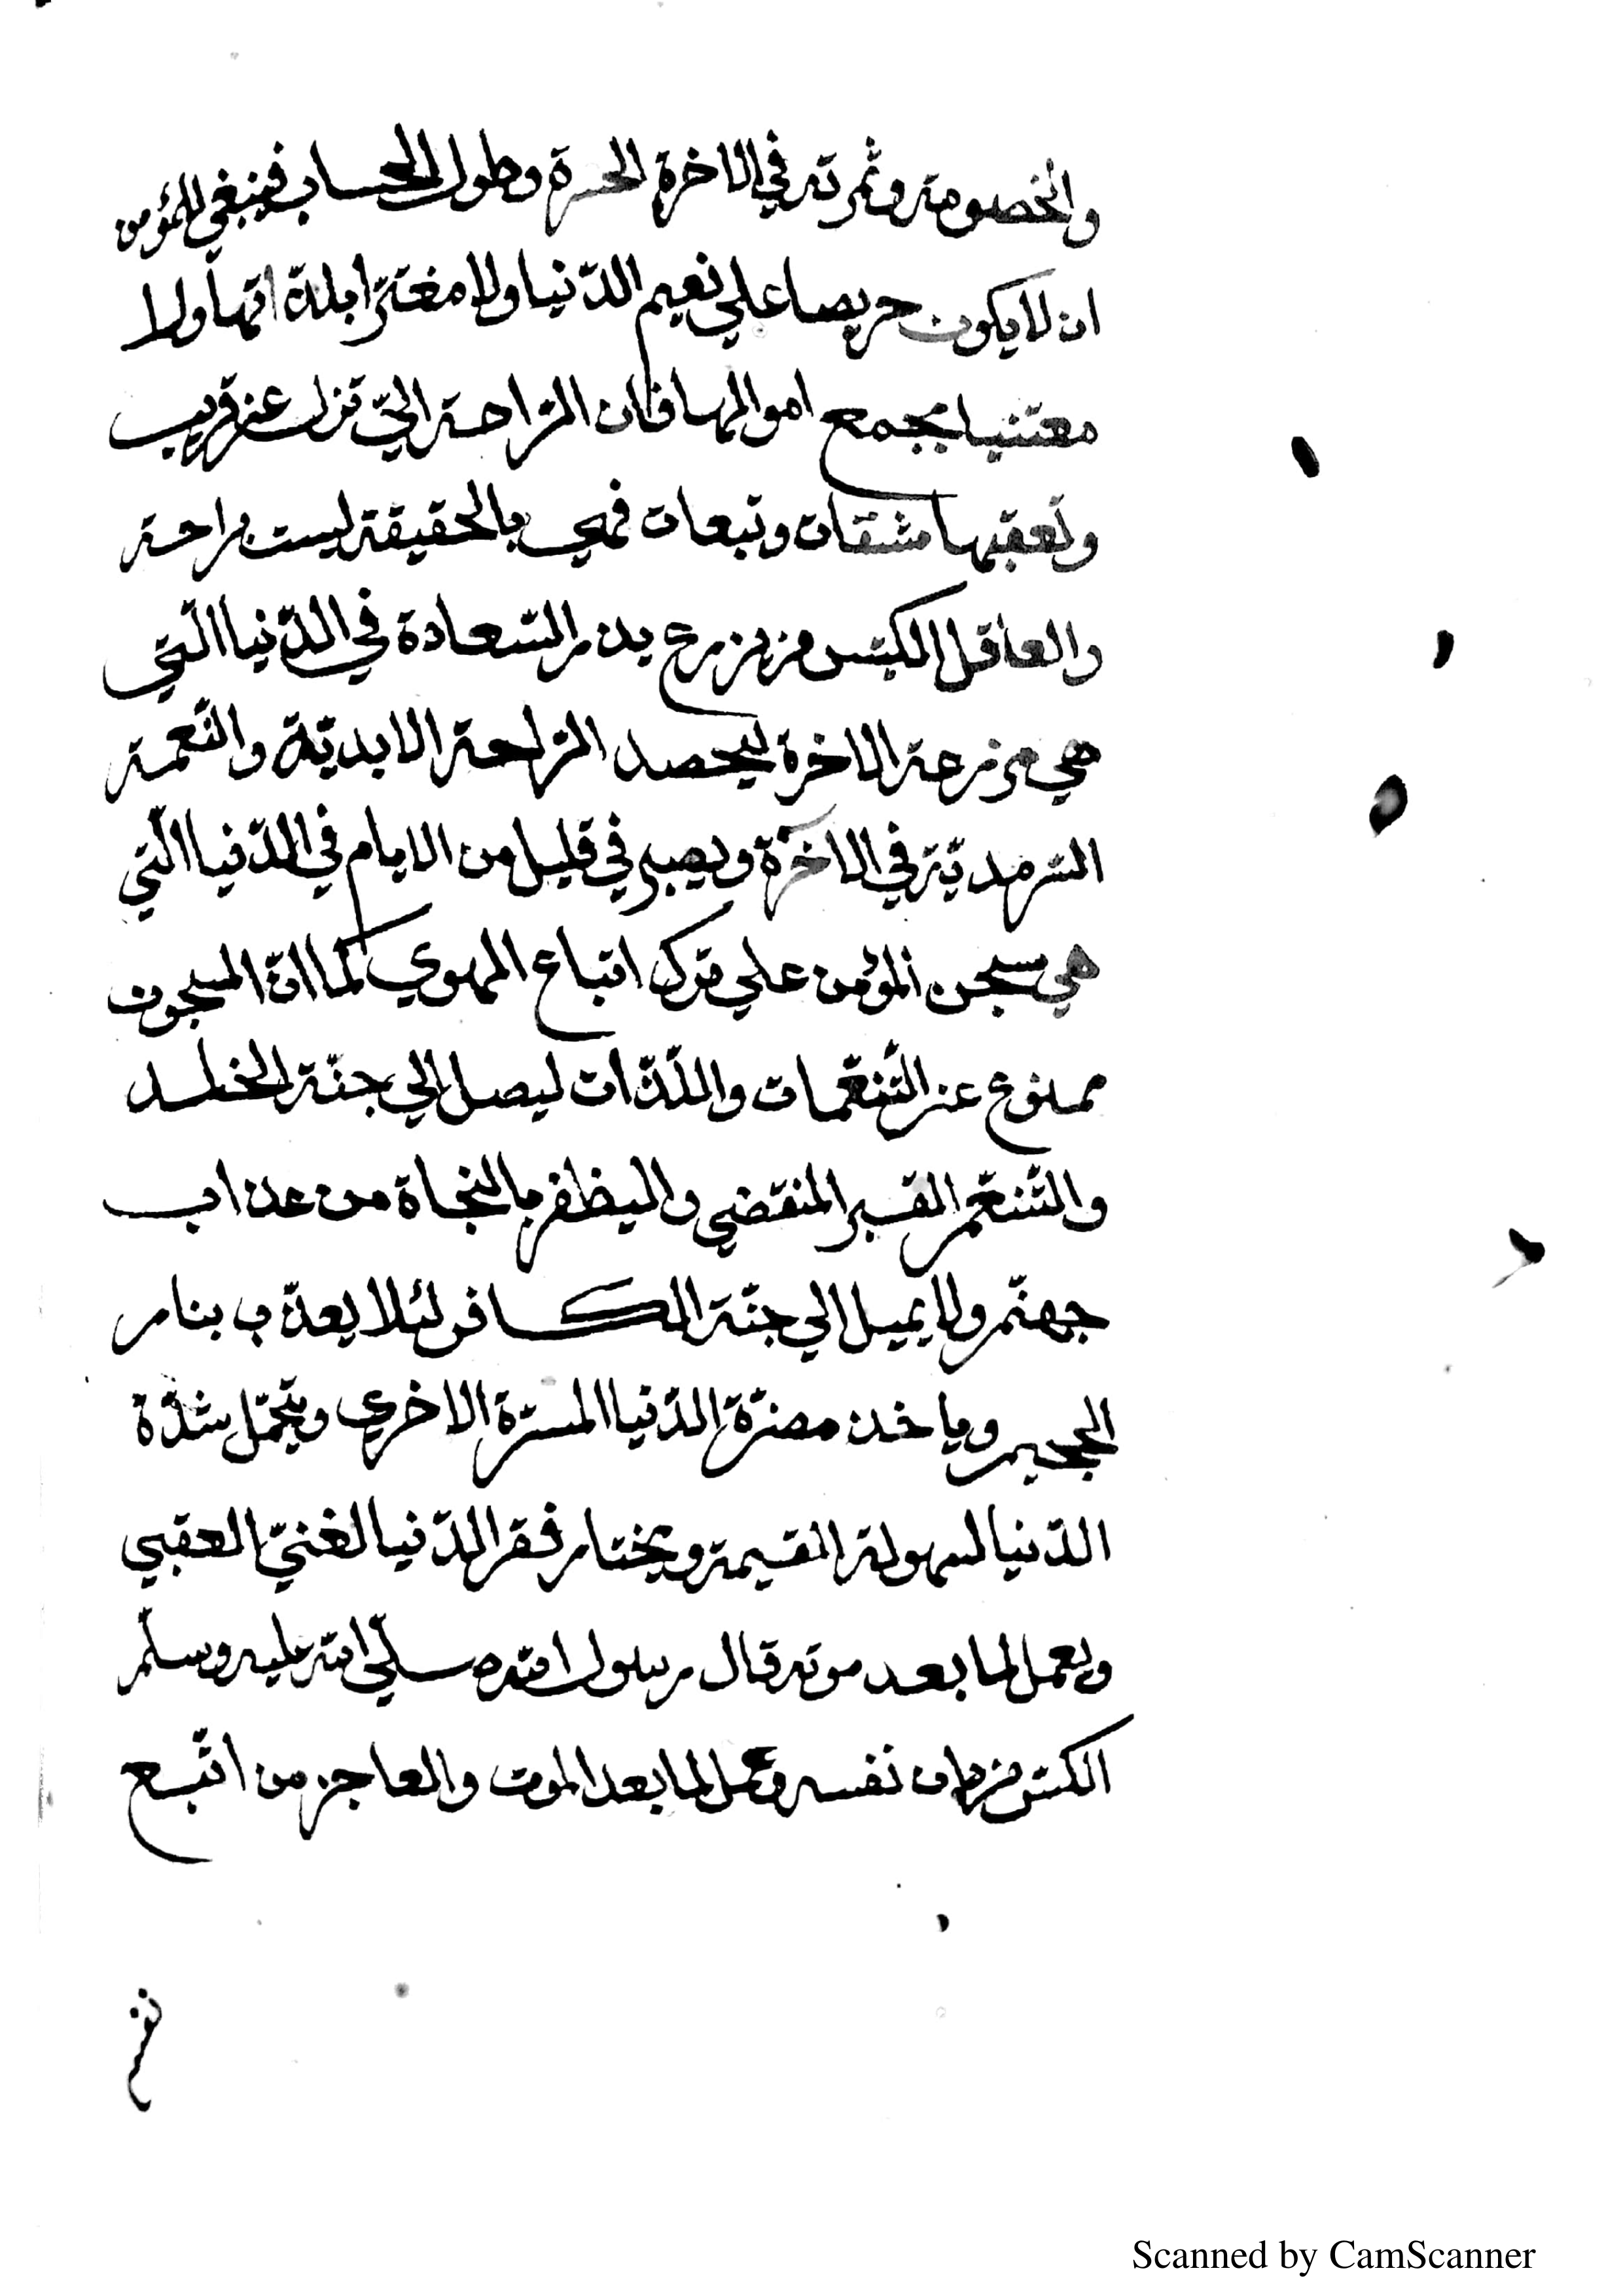 والخصومة وثمرته في الاخرة الحسرة وطول الحساب فينبغي للمؤمن
ان لا يكون حريصا علي نعيم الدّنيا ولا مغترّا بلذّاتها ولا
معتنيا بجمع اموالها فان الرّاحة الّتي تزل عن قريب
وتعقبها مشقات وتبعات فهي بالحقيقة ليست براحة
والعاقل الكيّس من يزرع بذر السّعادة في الدّنيا الّتي
هي مزرعة الاخرة ليحصد الرّاحة الابديّة والنّعمة
السّرمديّة في الاخرة ويصبر في قليل من الايام في الدّنيا الّتي
هي سجن المؤمن علي ترك اتباع الهوي كما انّ المسجون
ممنوع عن التّنعّمات واللّذّات ليصل الي جنّة الخلد
والتّنعّم الغير المنقضي واليظفر بالنجاة من عذاب
جهنّم ولا يميل الي جنّة الكافر لئلا يعذّب بنار
الجحيم وياخذ مضرّة الدّنيا لمسرّة الاخري ويتحمّل شدّة
الدّنيا لسهولة القيمة ويختار فقر الدّنيا لغنيّ العقبي
ويعمل لما بعد موته قال رسول الله صلّي الله عليه وسلّم
الكيّس من دان نفسه وعمل لما بعد الموت والعاجز من اتّبع
Scanned by CamScanner